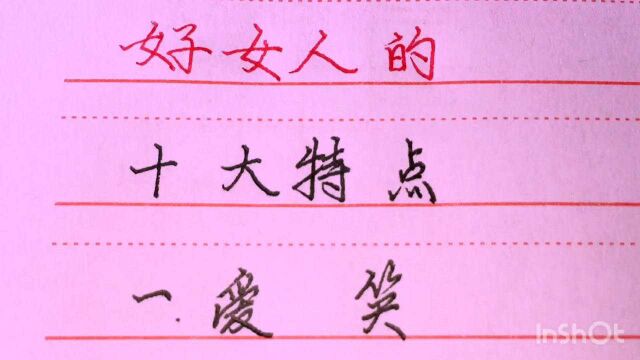 好女人的
十大特点
一.爱笑
InShOt